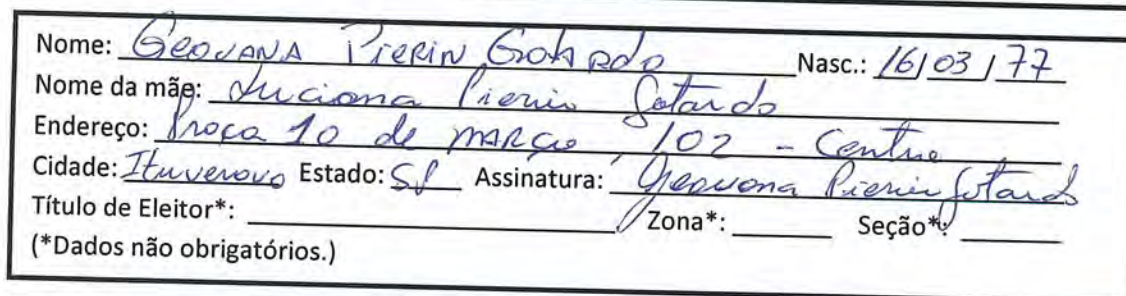 Nome: Geovana Pierin Gotardo Nasc.: 16/03/77
Nome da mãe: Luciana Pierin Gotardo
Endereço: Praça 10 de março, 102 - Centro
Cidade: Ituverava Estado: SP Assinatura: Geovana Pierin Gotardo
Título de Eleitor*: Zona*: Seção*:
(*Dados não obrigatórios.)